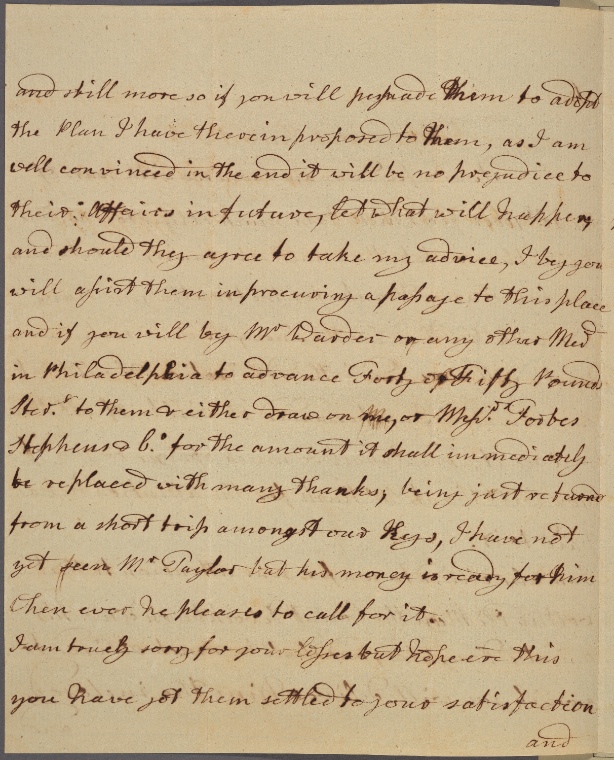 and still more so if you will persuade them to adopt
the Plan I have therein proposed to them, as I am
well convinced in the end it will be no prejudice to
their Affairs in future, let what will happen,
and should they agree to take my advice, I beg you
will assist them in procuring a passage to this place
and if you will by Mr or any other Med
in Philadelphia to advance Forty or Fifty Pounds
Ster.g to them & either draw on me, or Mess.rs Forbes
Stephens & C.o for the amount it shall immediately
be replaced with many thanks; being just returnd
from a short trip amongst our Keys, I have not
yet seen Mr Taylor but his money is ready for him
when ever he pleases to call for it.
I am truely sorry for your losses but hope e're this
you have got them settled to your satisfaction
and